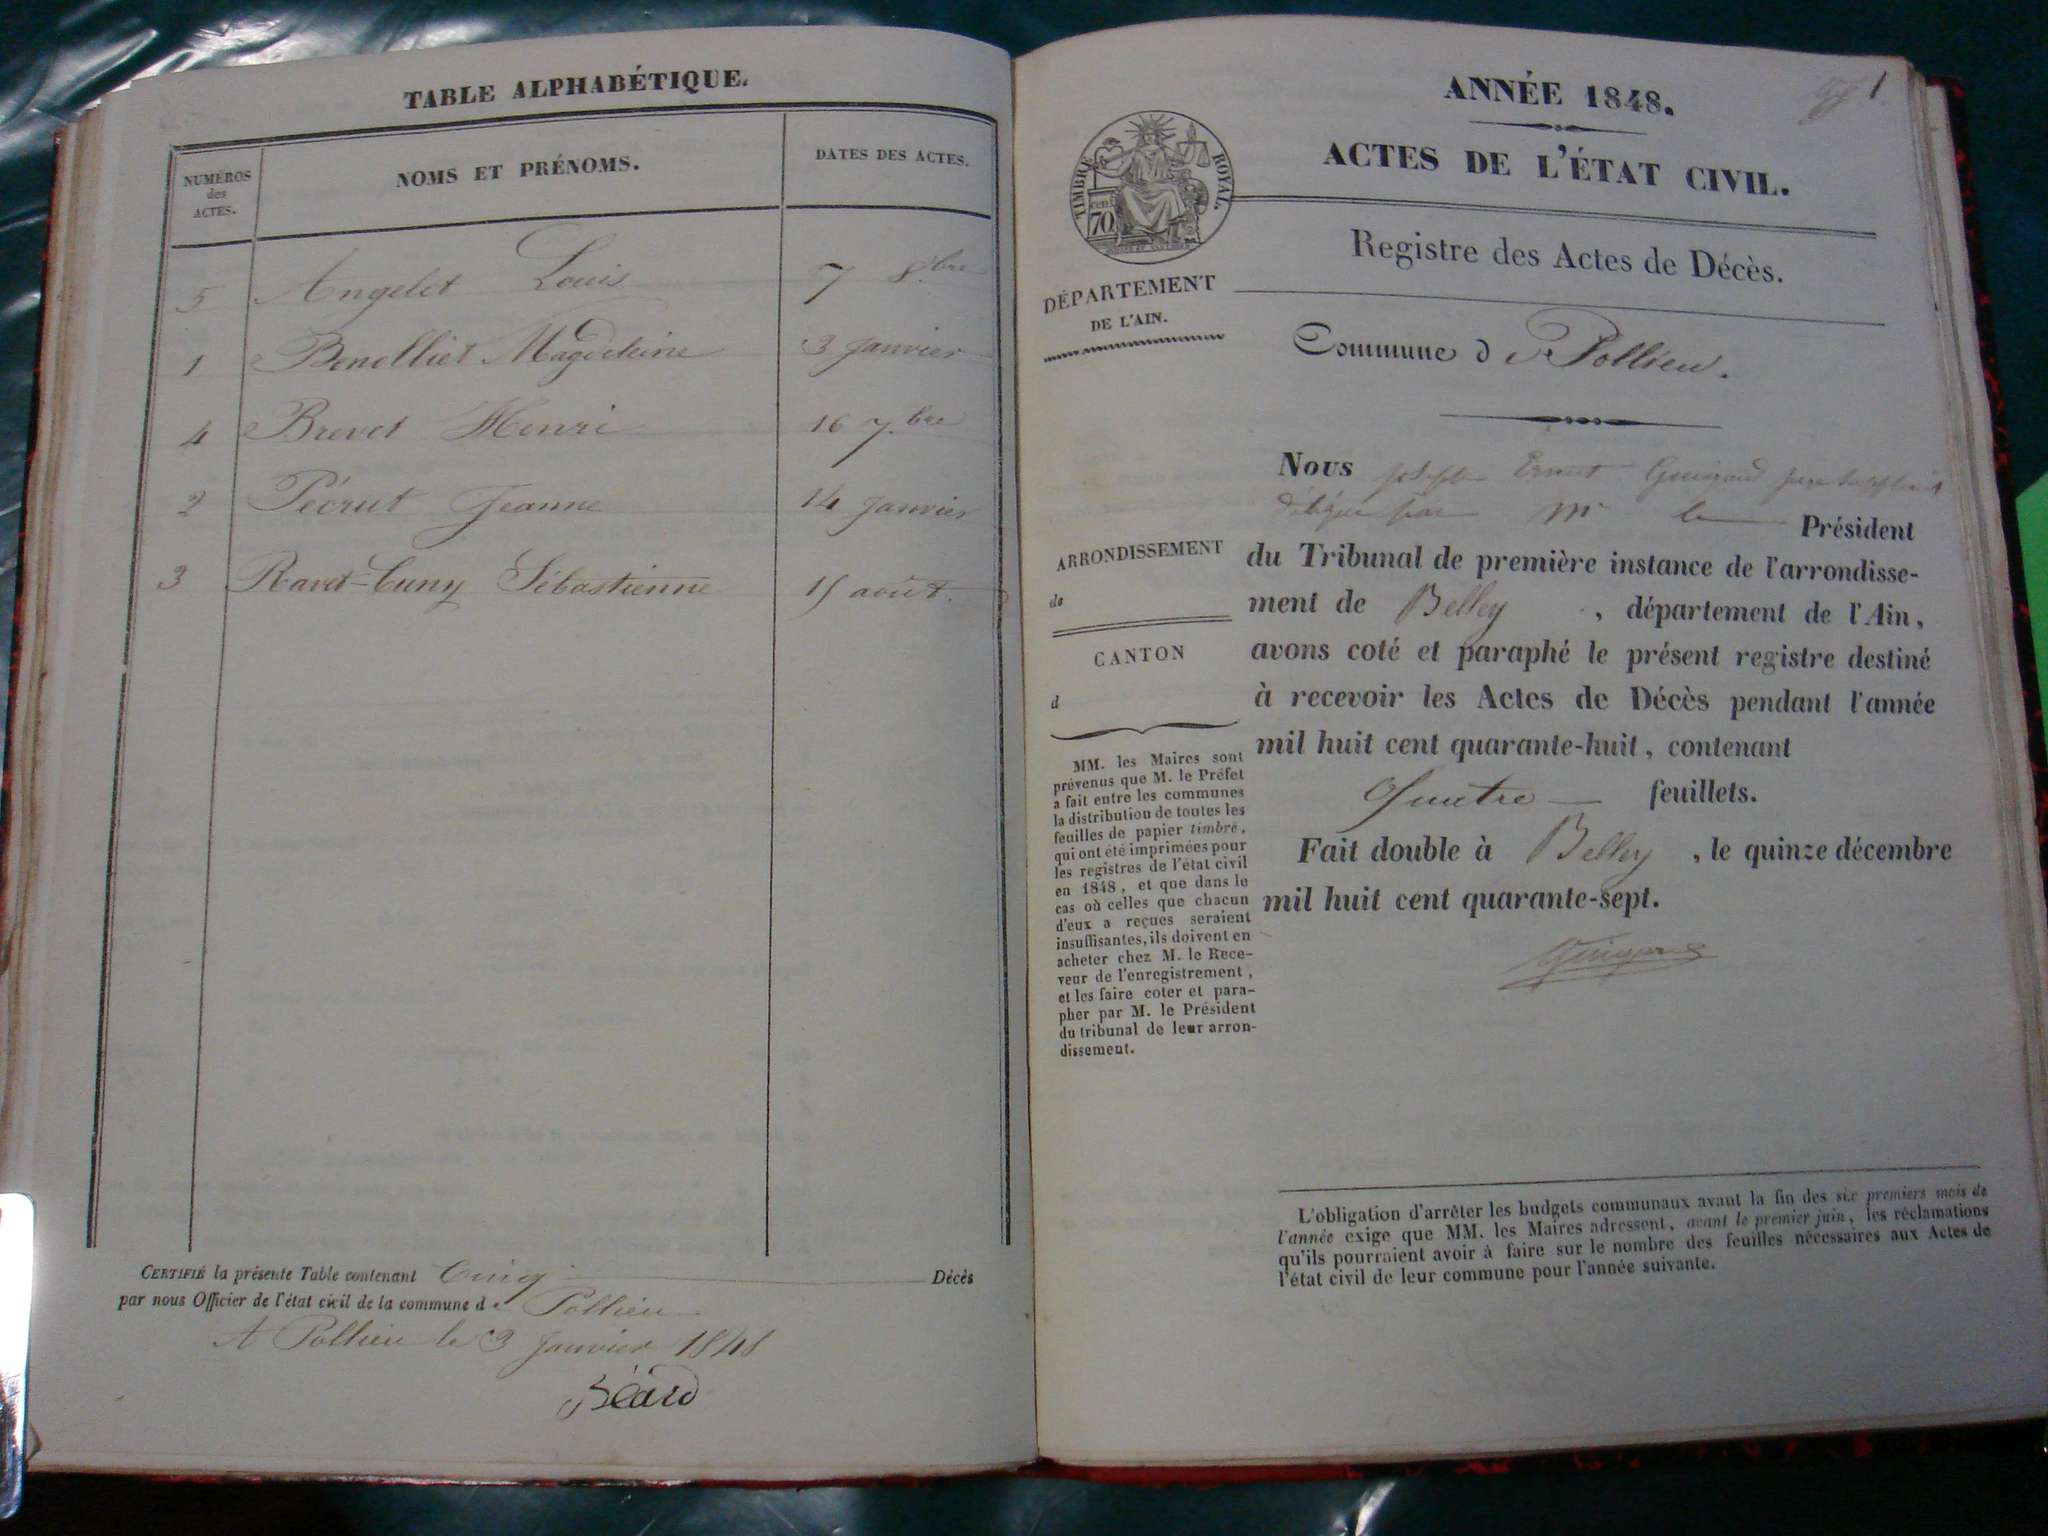 TABLE ALPHABÉTIQUE.
NUMÉROS
des
ACTES.
NOMS ET PRÉNOMS.
DATES DES ACTES.
5 Angelot Louis 7 8.bre
1 Benolliet Magdeleine 3 Janvier
4 Brevet Henri 16 7.bre
2 Pécrut Jeanne 14 Janvier
3 Ravet-Cuny Sébastienne 15 août.
CERTIFIÉ la présente Table contenant Cinq Décès
par nous Officier de l'état civil de la commune de Pollieu
A Pollieu le 3 Janvier 1848
Béard
1
ANNÉE 1848.
ACTES DE L'ÉTAT CIVIL.
TIMBRE ROYAL.
70 cen.
Registre des Actes de Décès.
DÉPARTEMENT
DE L'AIN.
Commune de Pollieu.
Nous Joseph Ernest Guigard juge suppléant
délégué par Mr le Président
du Tribunal de première instance de l'arrondisse-
ment de Belley , département de l'Ain,
avons coté et paraphé le présent registre destiné
à recevoir les Actes de Décès pendant l'année
mil huit cent quarante-huit, contenant
Quatre feuillets.
Fait double à Belley , le quinze décembre
mil huit cent quarante-sept.
ARRONDISSEMENT
de
CANTON
d
MM. les Maires sont
prévenus que M. le Préfet
a fait entre les communes
la distribution de toutes les
feuilles de papier timbré,
qui ont été imprimées pour
les registres de l'état civil
en 1848, et que dans le
cas où celles que chacun
d'eux a reçues seraient
insuffisantes, ils doivent en
acheter chez M. le Rece-
veur de l'enregistrement,
et les faire coter et para-
pher par M. le Président
du tribunal de leur arron-
dissement.
L'obligation d'arrêter les budgets communaux avant la fin des six premiers mois de
l'année exige que MM. les Maires adressent, avant le premier juin, les réclamations
qu'ils pourraient avoir à faire sur le nombre des feuilles nécessaires aux Actes de
l'état civil de leur commune pour l'année suivante.